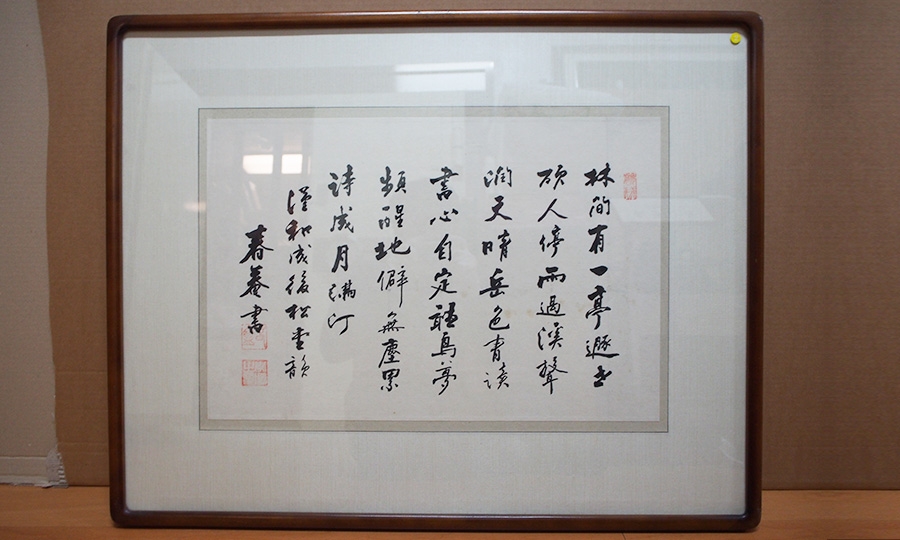 林間有一亭遯世
碩人停雨過溪聲
潤天晴岳色青讀
書心自定聽鳥夢
頻醒地僻無塵累
詩成月滿汀
謹和成後松堂韻
春菴書